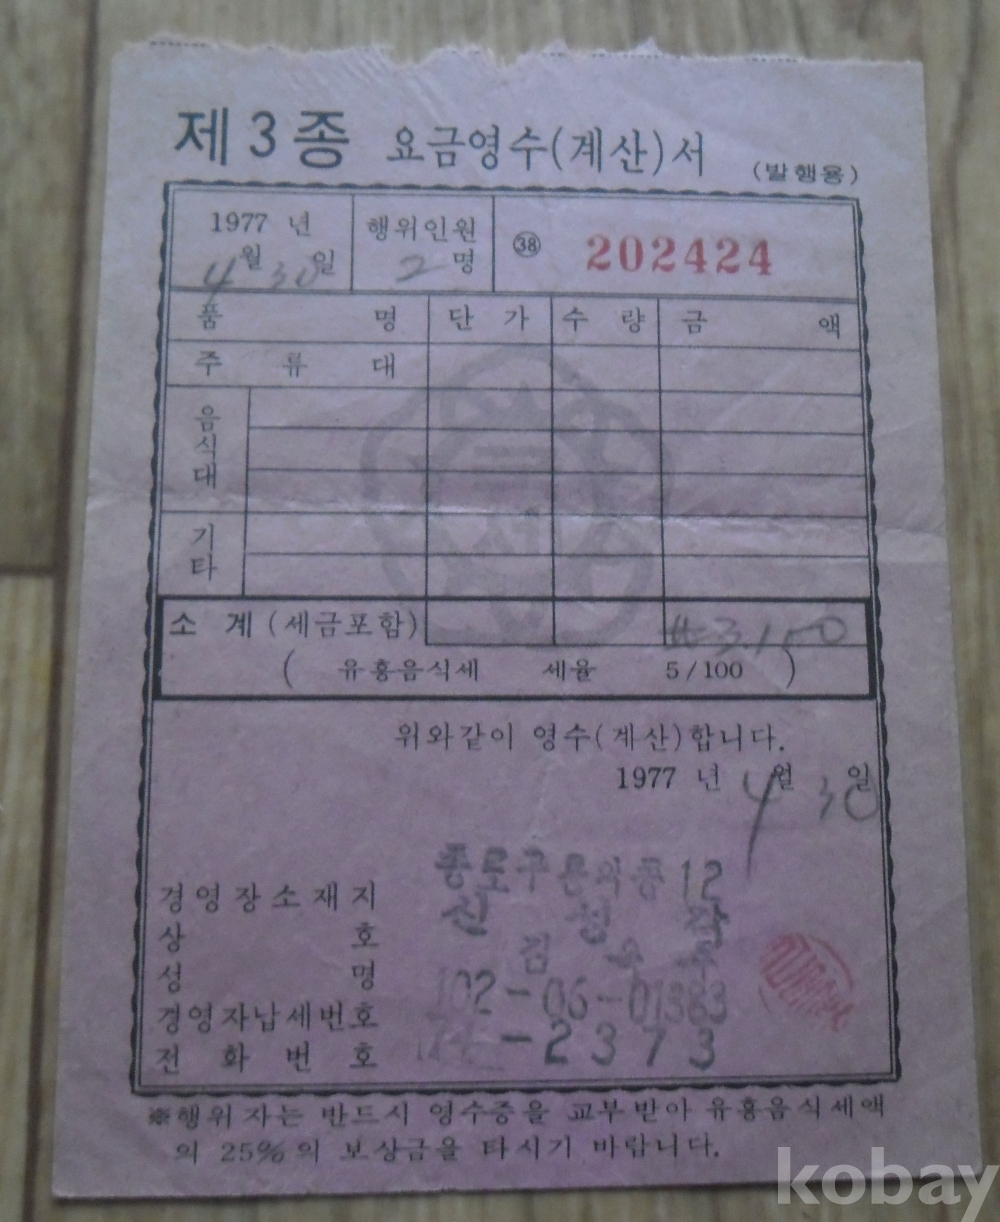 제3종 요금영수(계산)서 (발행용)
1977 년 4월 30일
행위인원 2 명
㊳ 202424
품 명 단 가 수 량 금 액
주 류 대
음식대
기타
소 계 (세금포함) ₩3,150
( 유흥음식세 세율 5/100 )
위와같이 영수(계산)합니다.
1977 년 4월 30일
경영장소재지 종로구 12
상 호 신 성
성 명 김
경영자납세번호 102-06-01383
전 화 번 호 -2373
※행위자는 반드시 영수증을 교부받아 유흥음식세액
의 25%의 보상금을 타시기 바랍니다.
kobay